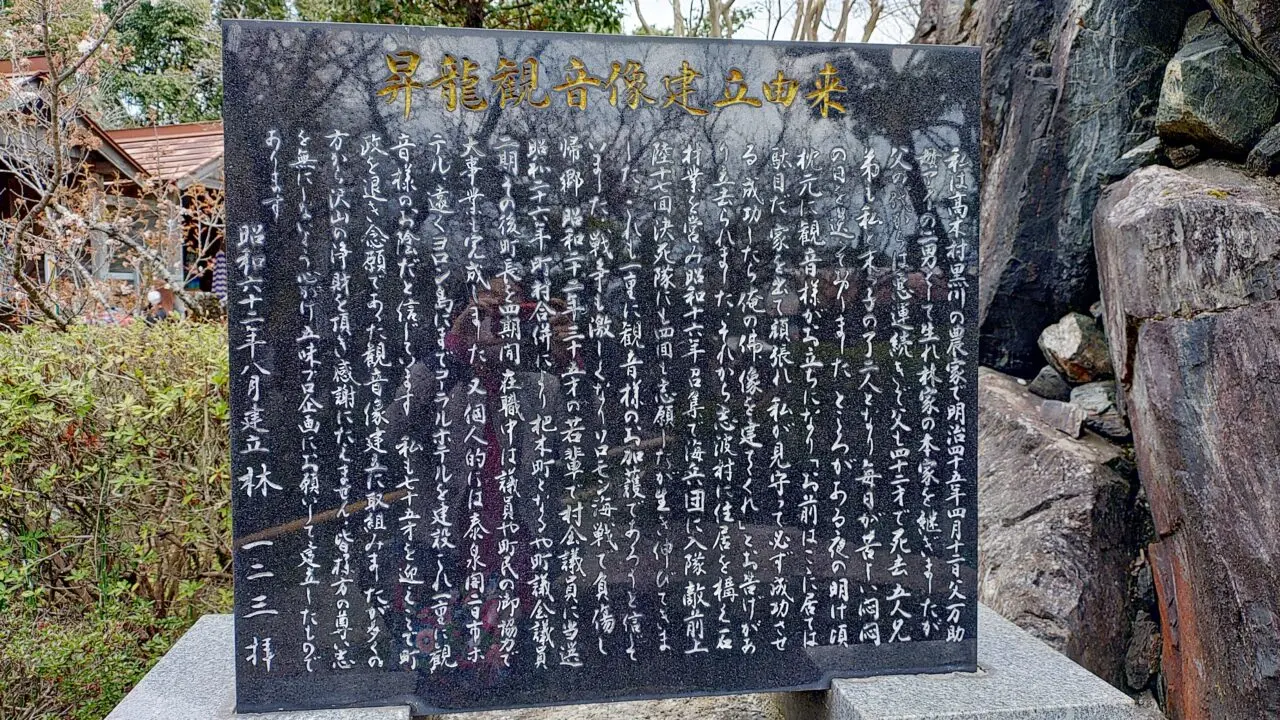 昇龍観音像建立由来
私は高木村黒川の農家で明治四十五年四月十一日父万助
母アイの二男として生れ林家の本家を継ぎましたが
父の は悪運続きで父も四十二才で死去五人兄
弟も私と末子の了二人となり毎日が苦しい悶悶
の日を送って居りました ところがある夜の明け頃
枕元に観音様がお立ちになり「お前はここに居ては
駄目だ 家を出て頑張れ 私が見守って必ず成功させ
る 成功したら俺の佛像を建てくれ」とお告げがあ
り立去られました それから志波村に住居を構え石
材業を営み昭和十六年召集で海兵団に入隊敵前上
陸十七回決死隊にも四回も志願したが生き伸びてきま
した これも一重に観音様のお加護であろうと信じて
いました 戦争も激しくなりソロモン海戦で負傷し
帰郷 昭和二十二年三十五才の若輩で村会議員に当選
昭和二十六年町村合併により杷木町となるや町議会議員
二期その後町長を四期間在職中は議員や町民の御協力で
大事業も完成しました 又個人的には泰泉閣二日市ホ
テル 遠くヨロン島にまでコーラルホテルを建設これ一重に観
音様のお陰だと信じています 私も七十五才を迎えここで町
政を退き念願であった観音像建立に取組みましたが多くの
方から沢山の浄財を頂き感謝にたえません 皆様方の尊い志
を無にしないよう心がけ五味プロ企画にお願いして建立したもので
あります
昭和六十二年八月建立 林 一二三 拝